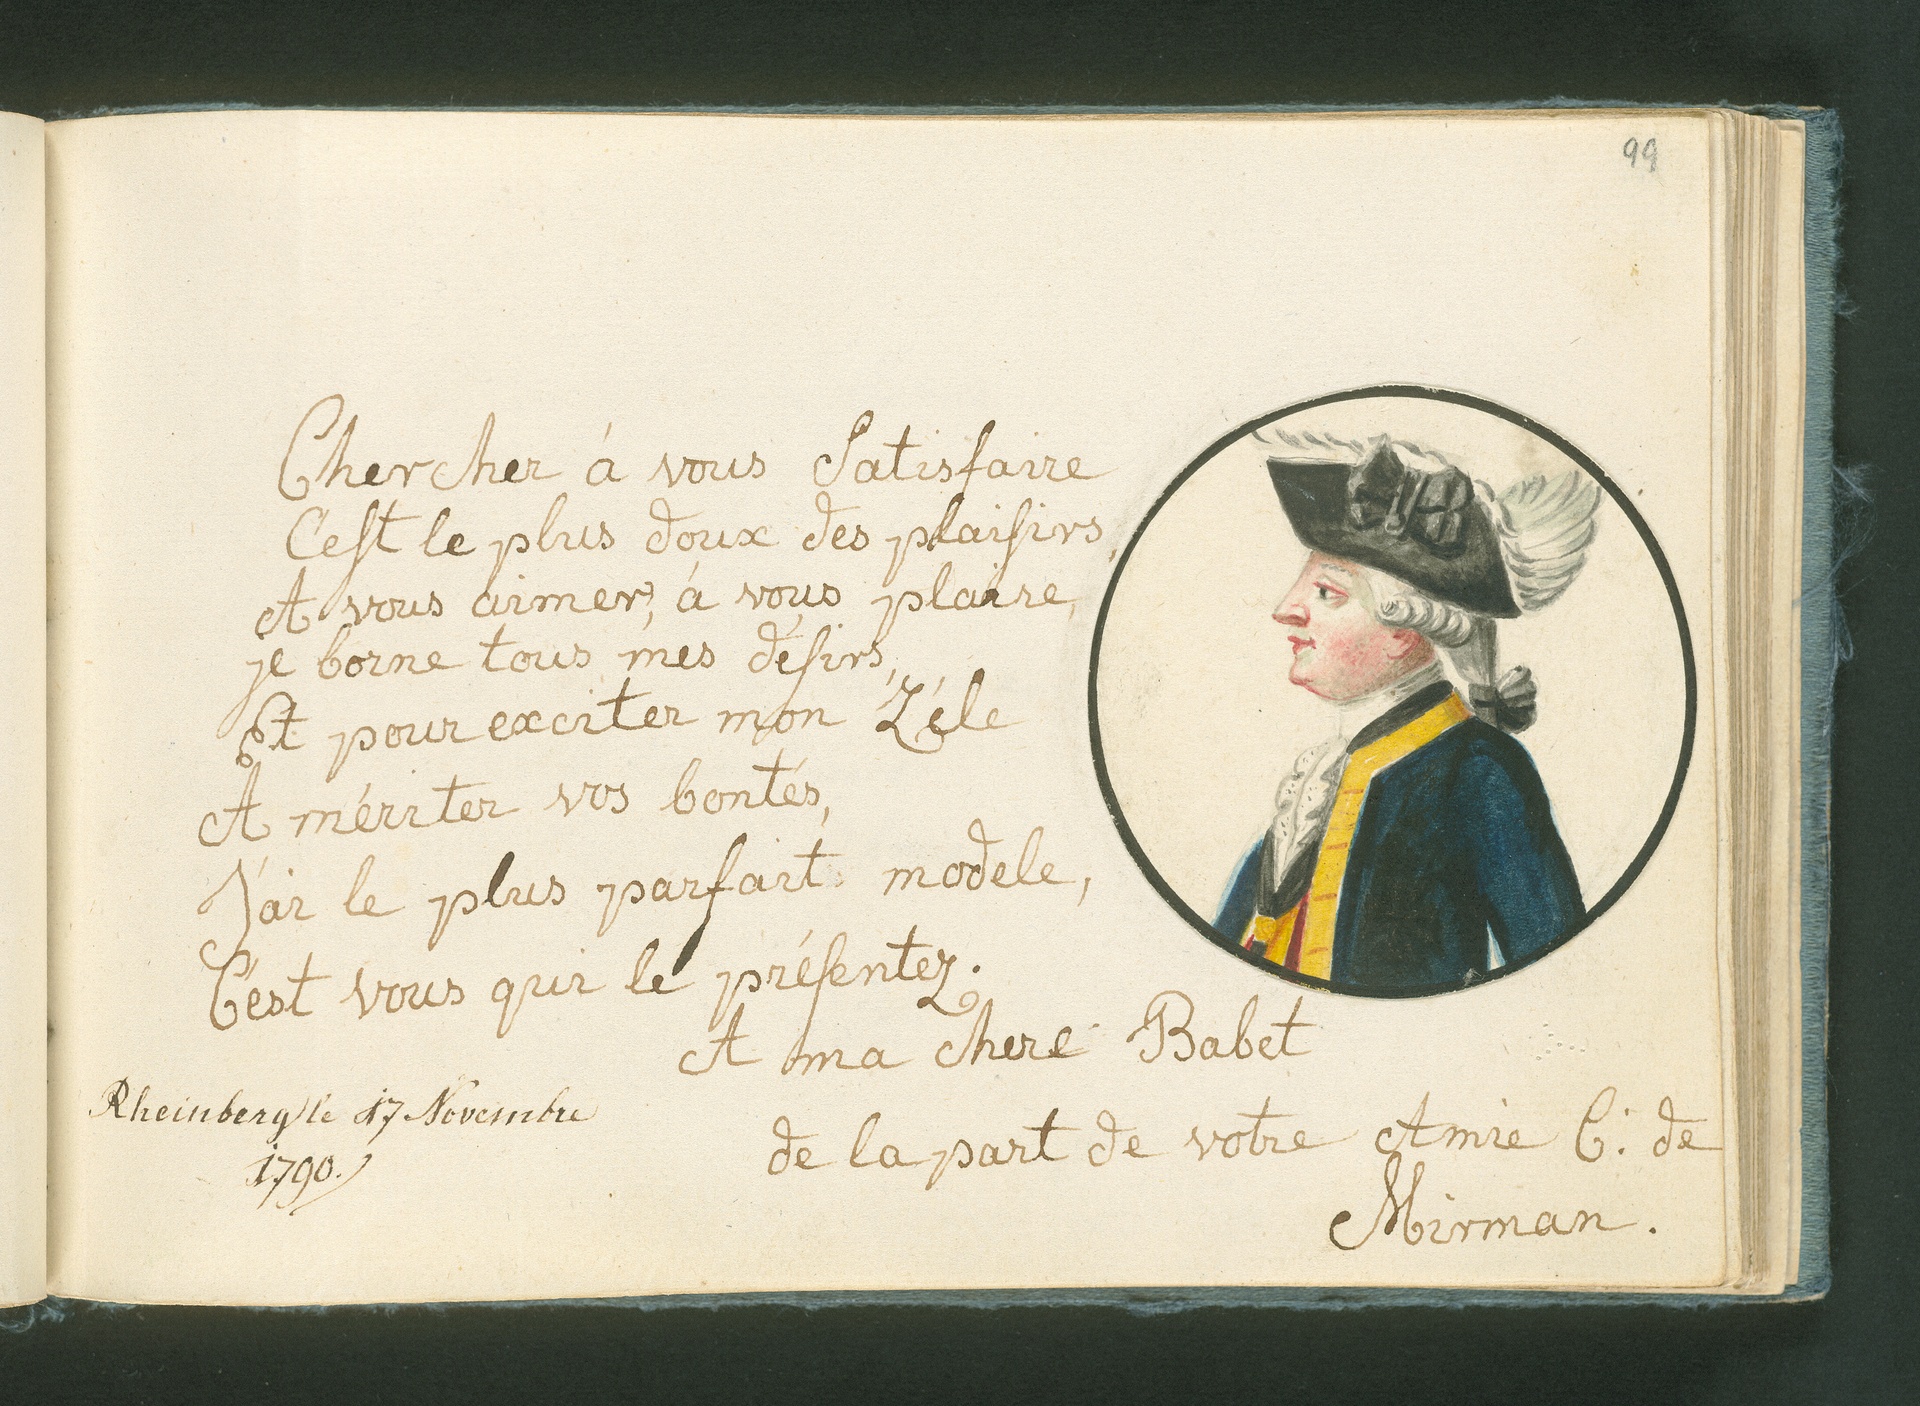 99
Chercher á vous Satisfaire
C'eſt le plus doux des plaiſirs,
A vous aimer, á vous plaire,
je borne tous mes déſirs,
Et pour exciter mon Zéle
A mériter vos bontés,
J'ai le plus parfait modele,
C'est vous qui le préſentez.
A ma chere Babet
Rheinberg le 17 Novembre
1790.
de la part de votre Amie C: de
Mirman.